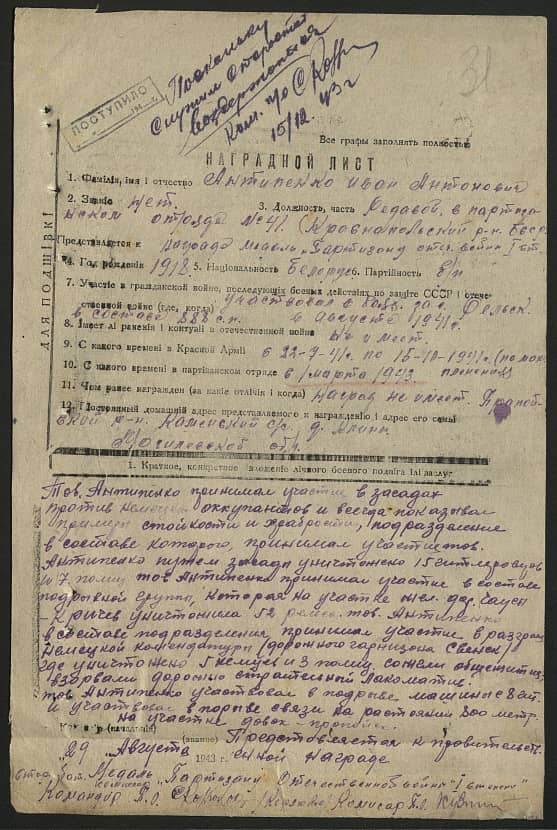 31
ПОСТУПИЛО
Поскольку
служил старостой
воздержаться
Ком. п/о
15/12 43 г
Все графы заполнять полностью
НАГРАДНОЙ ЛИСТ
ДЛЯ ПОДШІВКІ
1. Фамілія, імя і отчество Антипенко Иван Антонович
2. Званіе нет. 3. Должность, часть Рядовой, в партиза
нском отряде № 41 (Краснопольский р-н БССР
Представляется к награде медаль "Партизану отеч. войны" I ст.
4. Год рожденія 1918 5. Національность Белорус 6. Партійность б/п
7. Участіе в гражданской войне, последующіх боевых действіях по защіте СССР і отече-
ственной войне (где, когда) участвовал в
в составе 888 с.п. в августе 1941 г.
8. Імеет лі раненія і контузіі в отечественной войне Не имеет.
9. С какого временіі в Красной Арміі с 22-7-41 г. по 15-10-1941 г.
10. С какого временіі в партізанском отряде с 1 марта 1943 пленения)
11. Чем ранее награжден (за какіе отлічія і когда) наград не имеет.
12. Постоянный домашній адрес представляемого к награжденію і адрес его семьі Пропой-
ский р-н Каменский с/с д.
Могилевской обл.
1. Краткое, конкретное ізложеніе лічного боевого подвіга ілі заслуг
Тов. Антипенко принимал участие в засадах
против немецких оккупантов и всегда показывал
примеры стойкости и храбрости, подразделение
в составе которого, принимал участие тов.
Антипенко путем засады уничтожено 15 гитлеровцев
и 7 полиц. тов. Антипенко принимал участие в составе
подрывной группы, которая на участке жел. дор. Чаусы
Кричев уничтожила 52 рельс. тов. Антипенко
в составе подразделения принимал участие в разгроме
немецкой комендатуры (дорожного гарнизона
где уничтожено 5 немцев и 3 полиц. сожгли общежитие,
взорвали дорожно строительной
тов. Антипенко участвовал в подрыве машины с 8
и участвовал в порыве связи на расстоянии 800 метр.
на участке довск - пропойск.
Командір (начальнік) (званіе) Представляется к правительств.
"29 " Августа 1943 г. енной награде
Медаль "Партизану Отечественной войны" I степени
Командир П.О. Комисар П.О.